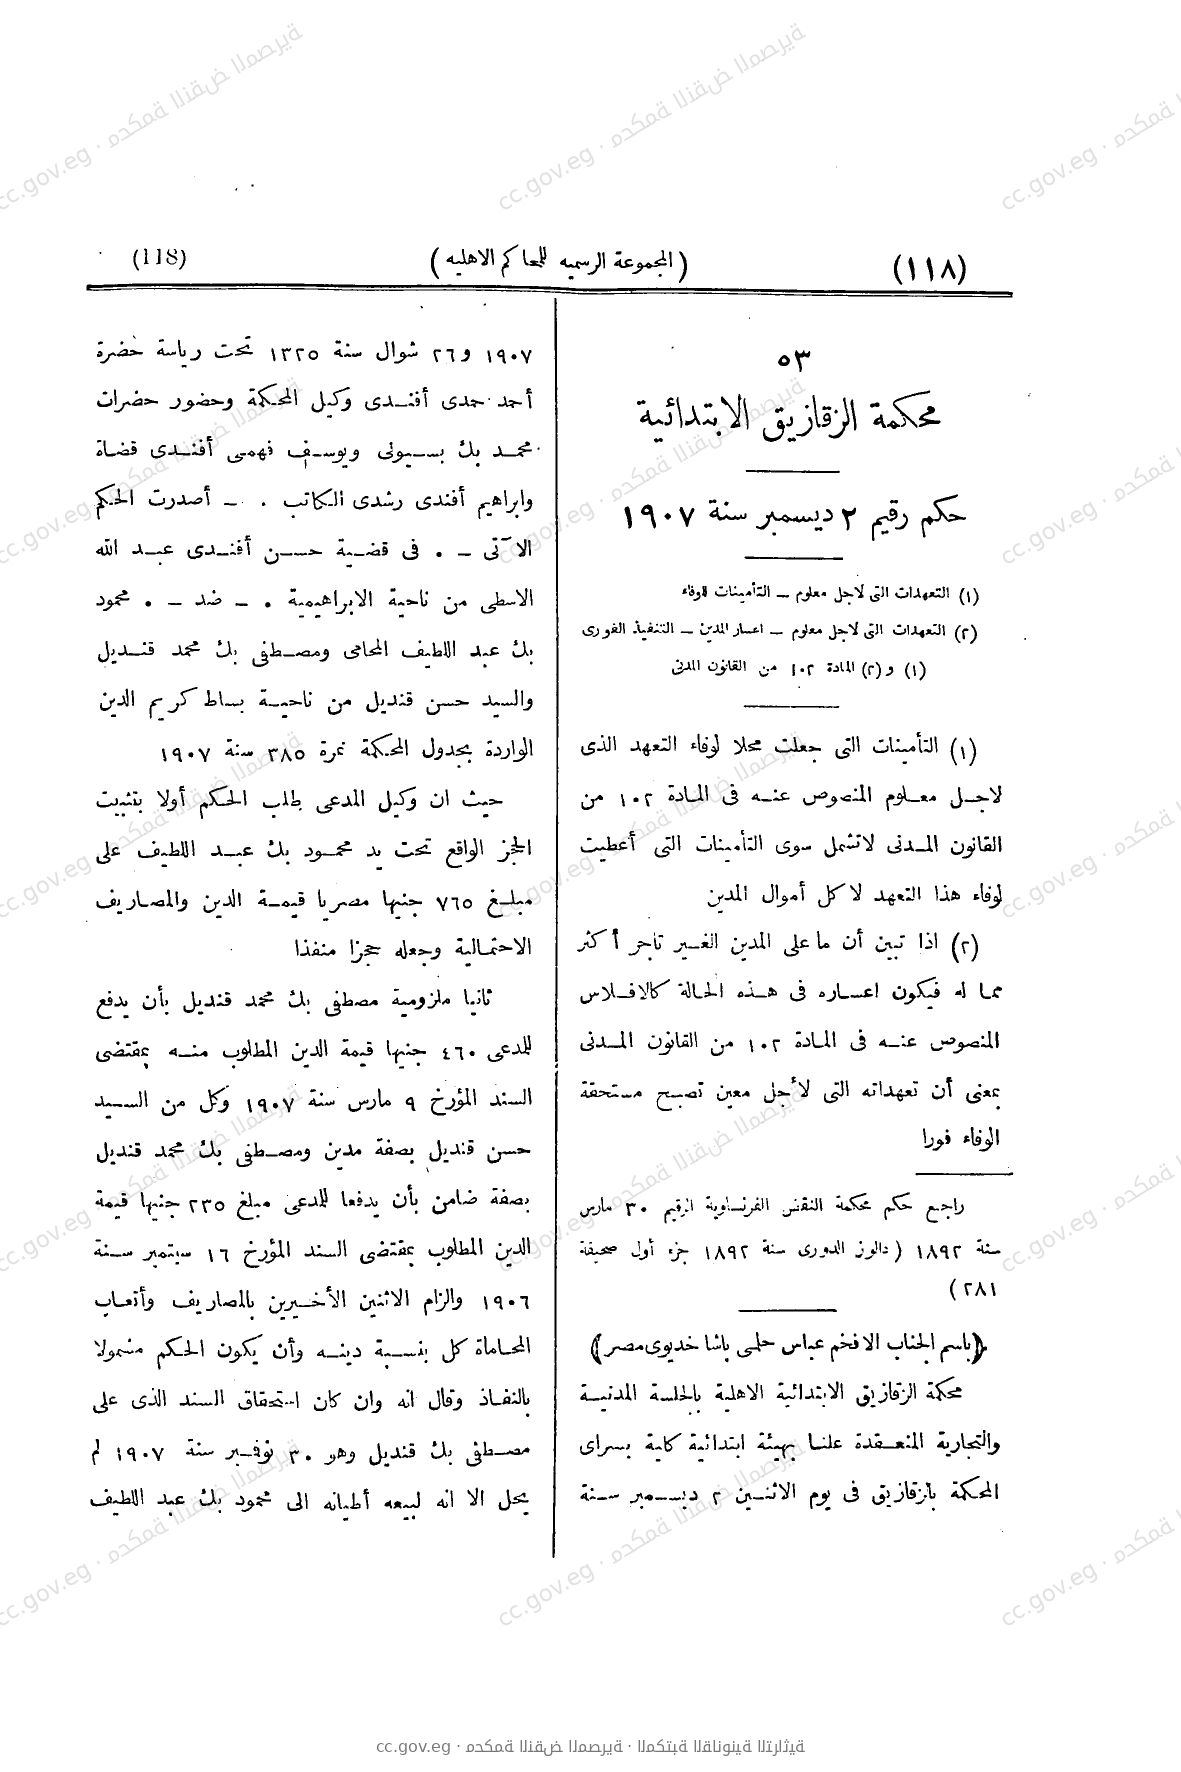 (١١٨)
(المجموعة الرسميه للمحاكم الاهليه)
(118)
٥٣
محكمة الزقازيق الابتدائية
حكم رقيم ٢ ديسمبر سنة ١٩٠٧
(١) التعهدات التى لاجل معلوم ــ التأمينات للوفاء
(٢) التعهدات التى لاجل معلوم ــ اعسار المدين ــ التنفيذ الفورى
(١) و(٢) المادة ١٠٢ من القانون المدنى
(١) التأمينات التى جعلت محلا لوفاء التعهد الذى
لاجل معلوم المنصوص عنه فى المادة ١٠٢ من
القانون المدنى لاتشمل سوى التأمينات التى أعطيت
لوفاء هذا التعهد لا كل أموال المدين
(٢) اذا تبين أن ما على المدين الغير تاجر أكثر
مما له فيكون اعساره فى هذه الحالة كالافلاس
المنصوص عنه فى المادة ١٠٢ من القانون المدنى
بمعنى أن تعهداته التى لأجل معين تصبح مستحقة
الوفاء فورا
راجع حكم محكمة النقض الفرنساوية الرقيم ٣٠ مارس
سنة ١٨٩٢ (دالوز الدورى سنة ١٨٩٢ جزء أول صحيفة
٢٨١)
(باسم الجناب الافخم عباس حلمى باشا خديوى مصر)
محكمة الزقازيق الابتدائية الاهلية بالجلسة المدنية
والتجارية المنعقدة علنا بهيئة ابتدائية كلية بسراى
المحكمة بالزقازيق فى يوم الاثنين ٢ ديسمبر سنة
١٩٠٧ و٢٦ شوال سنة ١٣٢٥ تحت رياسة حضرة
أحمد حمدى أفندى وكيل المحكمة وحضور حضرات
محمد بك بسيونى ويوسف فهمى أفندى قضاة
وابراهيم أفندى رشدى الكاتب . ــ أصدرت الحكم
الآتى ــ . فى قضية حسن أفندى عبد الله
الاسطى من ناحية الابراهيمية . ــ ضد ــ . محمود
بك عبد اللطيف المحامى ومصطفى بك محمد قنديل
والسيد حسن قنديل من ناحية بساط كريم الدين
الواردة بجدول المحكمة نمرة ٣٨٥ سنة ١٩٠٧
حيث ان وكيل المدعى طلب الحكم أولا بتثبيت
الحجز الواقع تحت يد محمود بك عبد اللطيف على
مبلغ ٧٦٥ جنيها مصريا قيمة الدين والمصاريف
الاحتمالية وجعله حجزا منفذا
ثانيا ملزومية مصطفى بك محمد قنديل بأن يدفع
للمدعى ٤٦٠ جنيها قيمة الدين المطلوب منه بمقتضى
السند المؤرخ ٩ مارس سنة ١٩٠٧ وكل من السيد
حسن قنديل بصفة مدين ومصطفى بك محمد قنديل
بصفة ضامن بأن يدفعا للمدعى مبلغ ٢٣٥ جنيها قيمة
الدين المطلوب بمقتضى السند المؤرخ ١٦ سبتمبر سنة
١٩٠٦ والزام الاثنين الأخيرين بالمصاريف وأتعاب
المحاماة كل بنسبة دينه وأن يكون الحكم مشمولا
بالنفاذ وقال انه وان كان استحقاق السند الذى على
مصطفى بك قنديل وهو ٣٠ نوفمبر سنة ١٩٠٧ لم
يحل الا انه لبيعه أطيانه الى محمود بك عبد اللطيف
cc.gov.eg · محكمة النقض المصرية · المكتبة القانونية التراثية